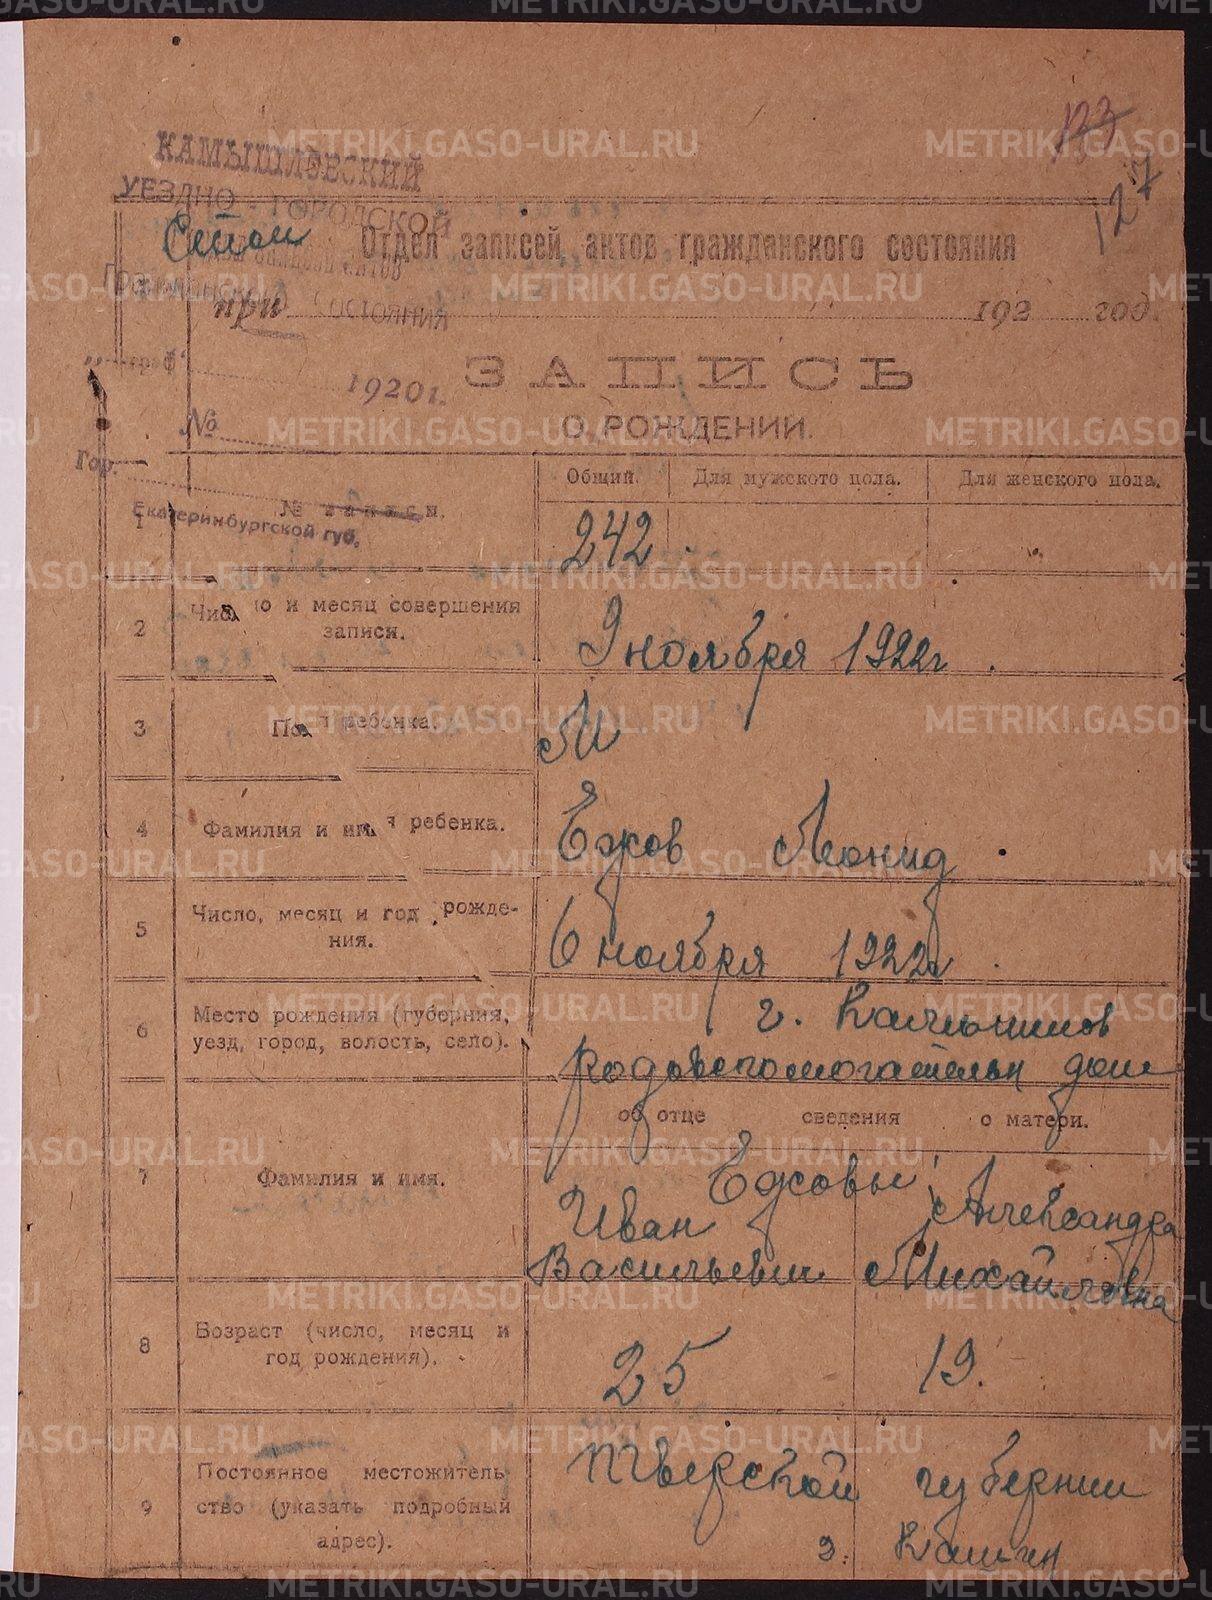 123
127
КАМЫШЛОВСКИЙ
УЕЗДНО-ГОРОДСКОЙ
Отдел записей актов гражданского состояния
ГРАЖДАНСКАГО СОСТОЯНИЯ
при 192 год.
1920 г.
ЗАПИСЬ
№
О РОЖДЕНИИ.
Гор.
Екатеринбургской губ.
Общий. Для мужского пола. Для женского пола.
1 № записи. 242
2 Число и месяц совершения записи. 9 ноября 1922 г.
3 Пол ребенка. М
4 Фамилия и имя ребенка. Ежов Леонид
5 Число, месяц и год рожде-
ния. 6 ноября 1922 г.
6 Место рождения (губерния, уезд, город, волость, село). г. Камышлов
родовспомогательн дом
об отце сведения о матери.
7 Фамилия и имя. Ежовы
Иван Александра
Васильевич Михайловна
8 Возраст (число, месяц и год рождения). 25 19.
9 Постоянное местожитель-
ство (указать подробный адрес). Тверской губернии
г. Кашин
METRIKI.GASO-URAL.RU